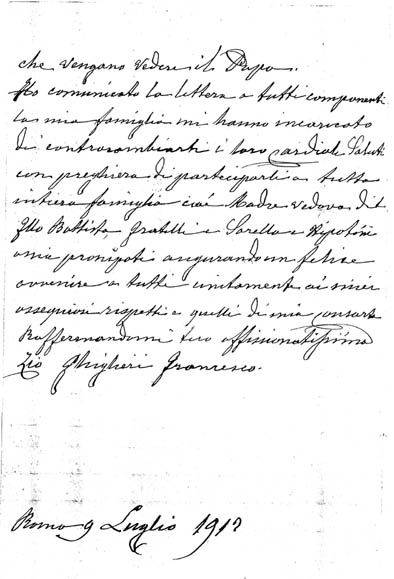 che vengano vedere il Papa.
Ho comunicato la lettera a tutti componenti
la mia famiglia mi hanno incaricato
di controcambiarti i loro cardiali Saluti
con preghiera di parteciparli a tutta
intiera famiglia cioé Madre vedova di
Battista fratelli e Sorella e Nipotini
a miei pronipoti augurando un felice
avvenire a tutti unitamente ai miei
ossequiosi rispetti e quelli di mia consorte
Raffermandomi tuo affisionatissimo
Zio Ghiglieri Francesco.
Roma 9 Luglio 1912